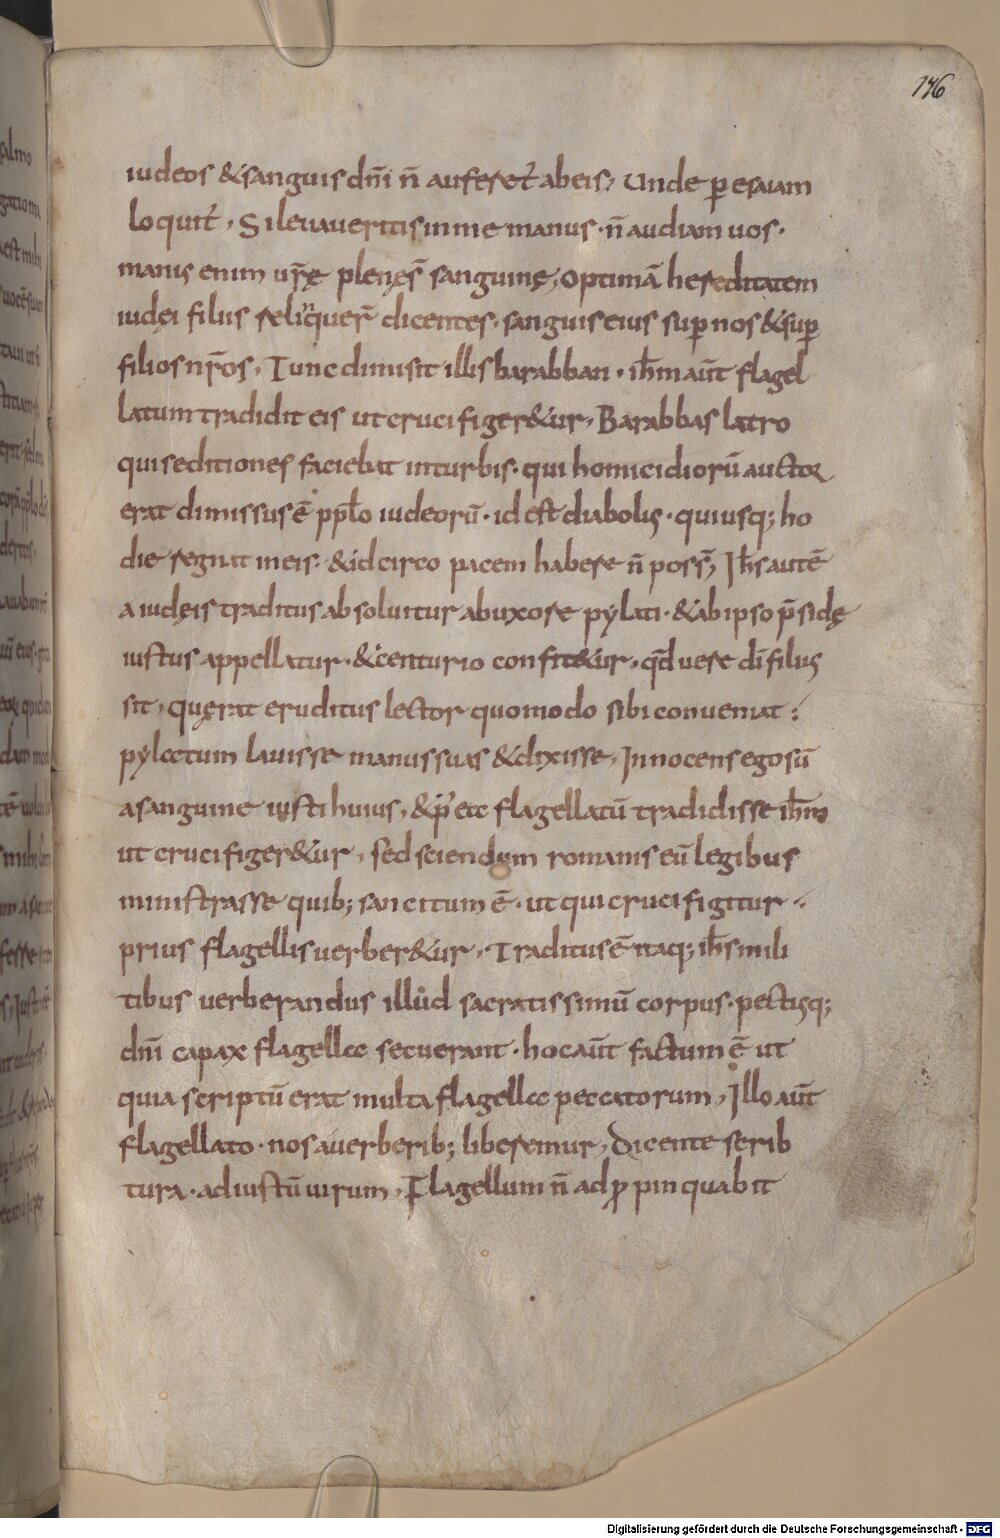 176
iudeos &sanguis dn̄i n̄ auferet᷑ abeis, Unde ꝑ esaiam
loquit᷑, Si leuaueritis in me manus · n̄ audiam uos ·
manus enim ur̄ę plenęs̄ sanguinę, optimā hereditatem
iudęi filiis reliquer̄ dicentes, sanguis eius sup̄ nos & sup̄
filios nr̄os, Tunc dimisit illis barabban · ih̄m aūt flagel
latum tradidit eis ut crucifiger&ur, Barabbas latro
qui seditiones faciebat in turbis · qui homicidiorū auctor
erat dimissus ē ppl̄o iudeorū · id est diabolus · qui usq; ho
die regnat in eis · & idcirco pacem habere n̄ poss̄, Ih̄s autē
a iudęis traditus absoluitur ab uxore pylati · & ab ipso p̄sidę
iustus appellatur · & centurio confit&ur, qd̄ uere dī filius
sit, quęrat eruditus lector quomodo sibi conueniat :
pylatum lauisse manus suas & dixisse, Innocens ego sū
a sanguine iusti huius, & p̄ etc flagellatū tradidisse ih̄m
ut crucifiger&ur, sed sciendum romanis eū legibus
ministrasse quib; sancitum ē · ut qui crucifigitur ·
prius flagellis uerber&ur, Traditus ē itaq; ih̄s mili
tibus uerberandus illud sacratissimū corpus · pectusq;
dn̄i capax flagella secuerant · hoc aūt factum ē ut
quia scriptū erat multa flagella peccatorum, Illo aūt
flagellato · nos a uerberib; liberemur, Dicente scrib
tura · ad iustū uirum, Flagellum n̄ adꝓpinquabit
Digitalisierung gefördert durch die Deutsche Forschungsgemeinschaft - DFG